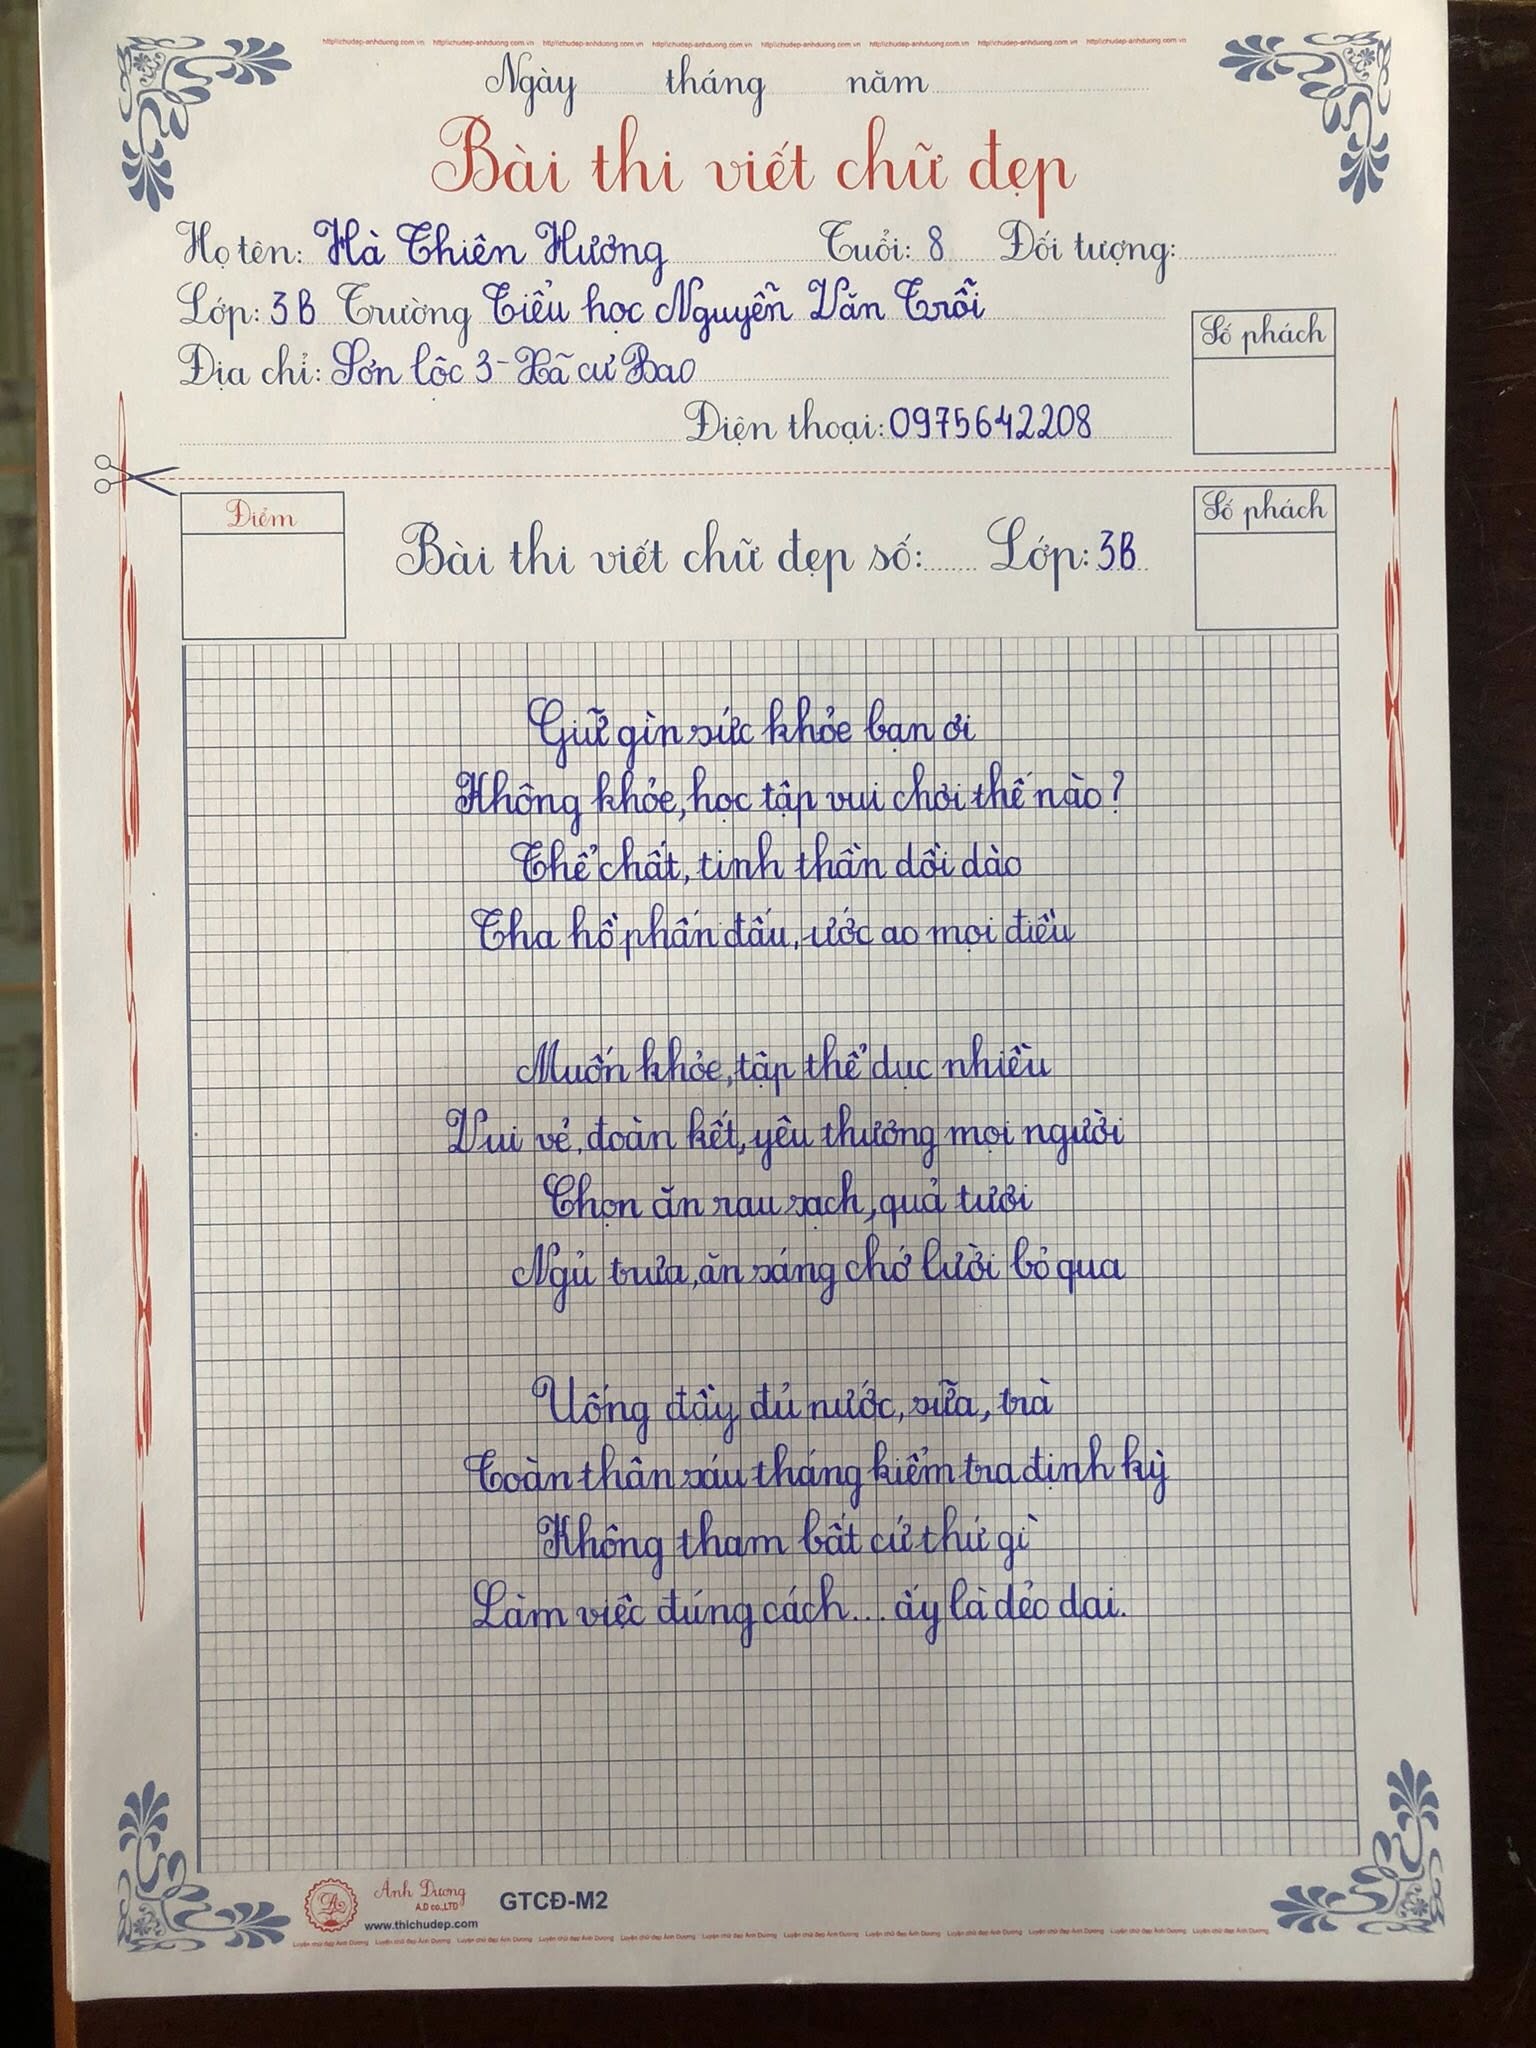 http\\chudep-anhduong.com.vn http\\chudep-anhduong.com.vn http\\chudep-anhduong.com.vn http\\chudep-anhduong.com.vn http\\chudep-anhduong.com.vn http\\chudep-anhduong.com.vn http\\chudep-anhduong.com.vn http\\chudep-anhduong.com.vn
Ngày tháng năm
Bài thi viết chữ đẹp
Họ tên: Hà Thiên Hương Tuổi: 8 Đối tượng:
Lớp: 3B Trường Tiểu học Nguyễn Văn Trỗi
Địa chỉ: Sơn lộc 3 - Xã cư Bao
Số phách
Điện thoại: 0975642208
Điểm
Bài thi viết chữ đẹp số: Lớp: 3B
Số phách
Giữ gìn sức khỏe bạn ơi
Không khỏe, học tập vui chơi thế nào?
Thể chất, tinh thần dồi dào
Tha hồ phấn đấu, ước ao mọi điều
Muốn khỏe, tập thể dục nhiều
Vui vẻ, đoàn kết, yêu thương mọi người
Chọn ăn rau sạch, quả tươi
Ngủ trưa, ăn sáng chớ lười bỏ qua
Uống đầy đủ nước, sữa, trà
Toàn thân sáu tháng kiểm tra định kỳ
Không tham bất cứ thứ gì
Làm việc đúng cách... ấy là dẻo dai.
Ánh Dương
A.D co.,LTD
www.thichudep.com
GTCĐ-M2
Luyện chữ đẹp Ánh Dương Luyện chữ đẹp Ánh Dương Luyện chữ đẹp Ánh Dương Luyện chữ đẹp Ánh Dương Luyện chữ đẹp Ánh Dương Luyện chữ đẹp Ánh Dương Luyện chữ đẹp Ánh Dương Luyện chữ đẹp Ánh Dương Luyện chữ đẹp Ánh Dương Luyện chữ đẹp Ánh Dương Luyện chữ đẹp Ánh Dương Luyện chữ đẹp Ánh Dương